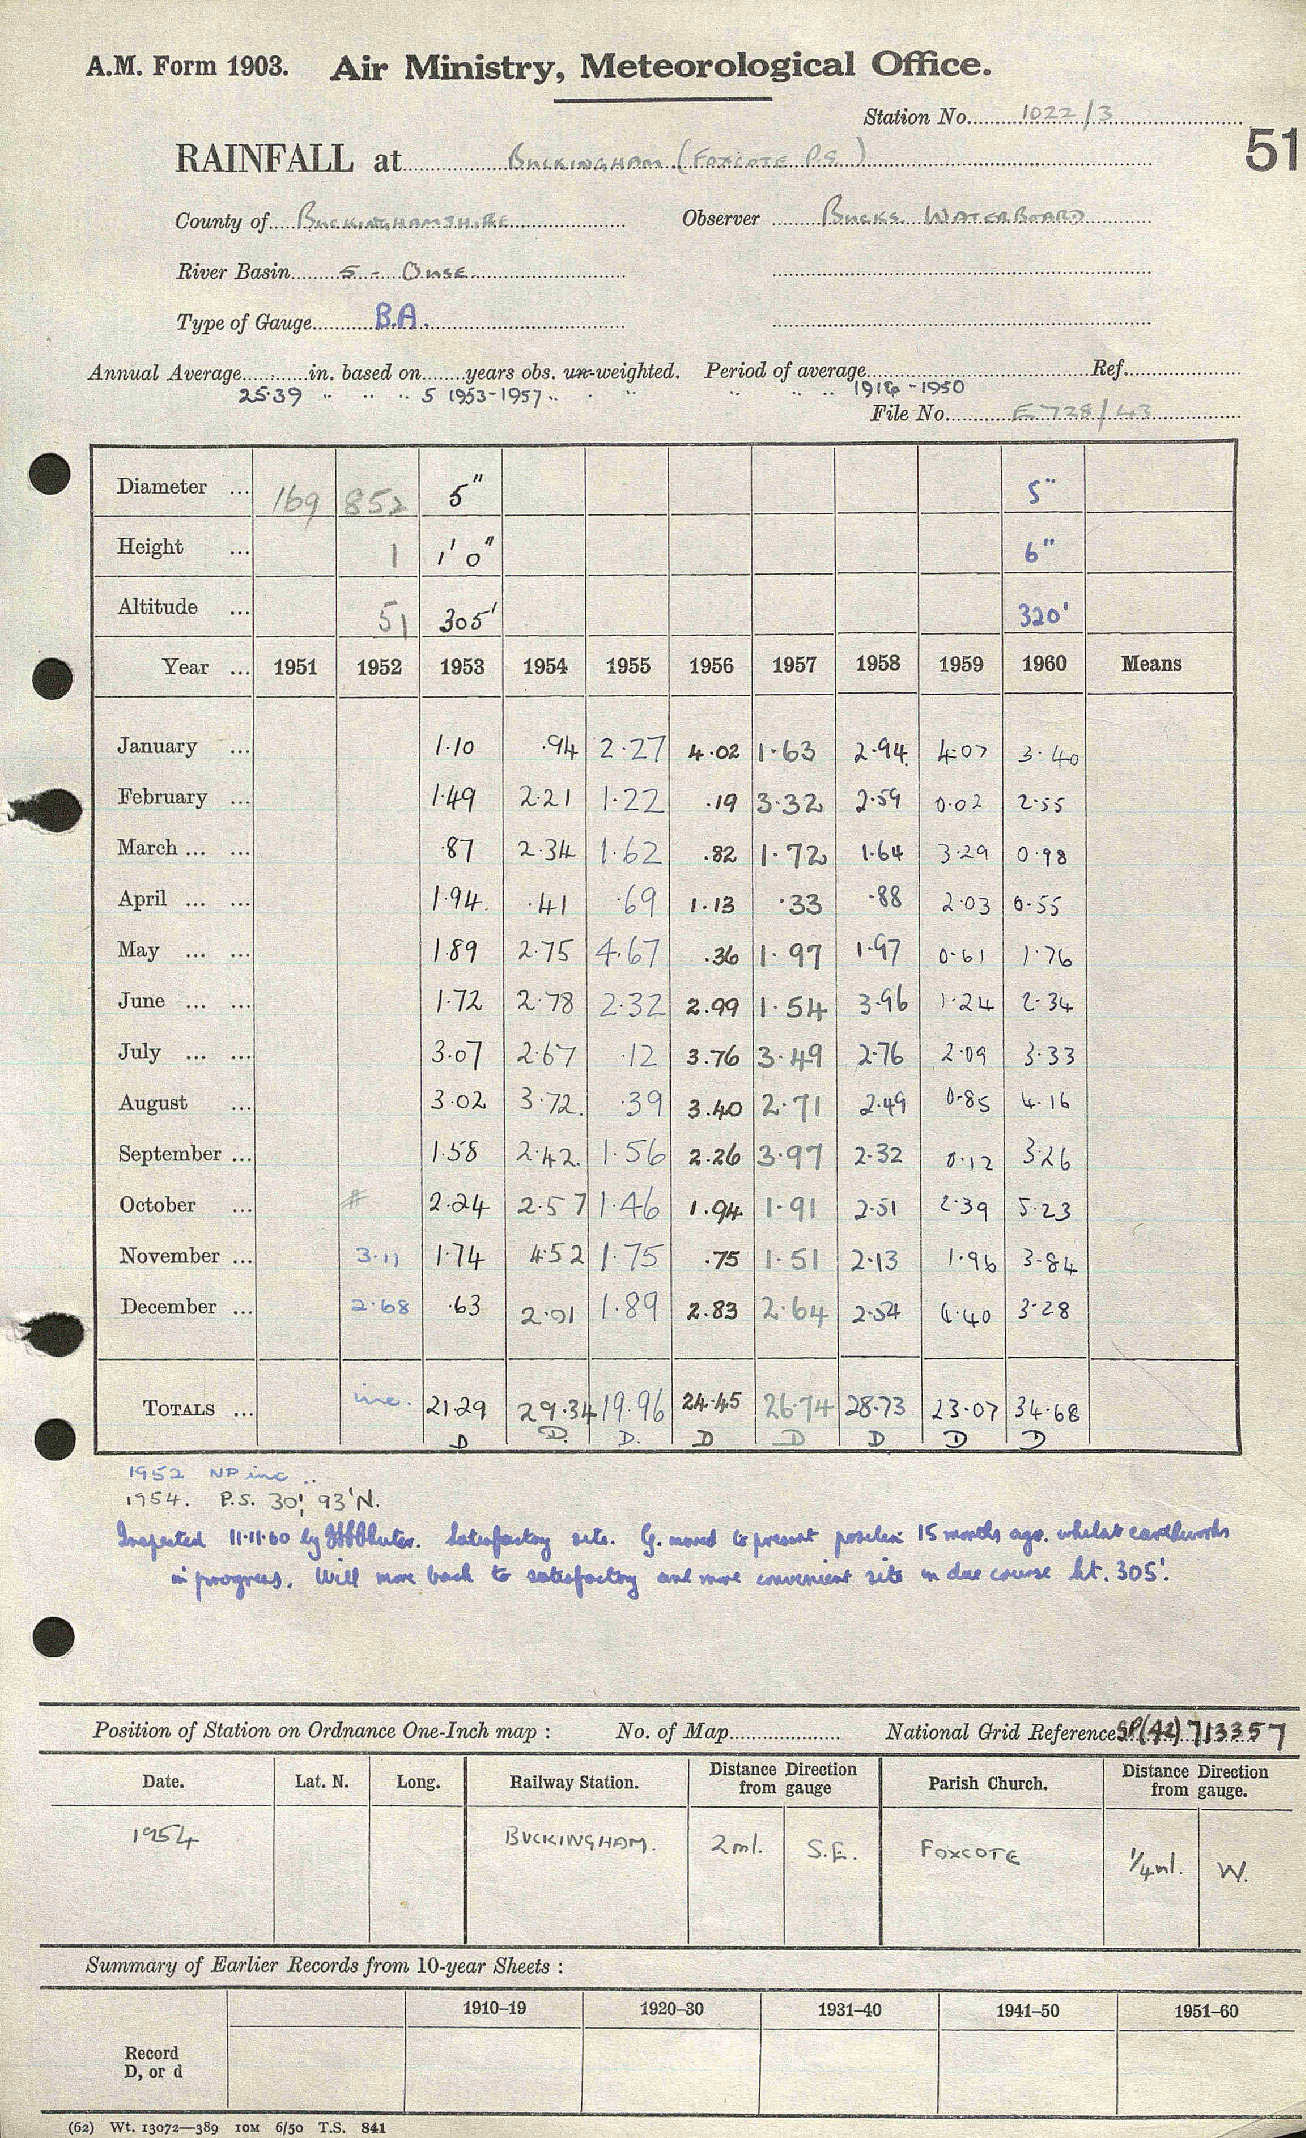 A.M. Form 1903. Air Ministry, Meteorological Office.
Station No. 1022/3
51
RAINFALL at BUCKINGHAM (FOXCOTE P.S.)
County of BUCKINGHAMSHIRE Observer BUCKS WATERBOARD
River Basin 5 - OUSE
Type of Gauge B.A.
Annual Average in. based on years obs. un-weighted. Period of average Ref.
25.39 " " " 5 1953-1957 " " " " " " 1916-1950
File No. E728/43
Diameter ... 169 852 5" 5"
Height ... 1 1' 0" 6"
Altitude ... 51 305' 320'
Year ... 1951 1952 1953 1954 1955 1956 1957 1958 1959 1960 Means
January ... 1.10 .94 2.27 4.02 1.63 2.94 4.07 3.40
February ... 1.49 2.21 1.22 .19 3.32 2.59 0.02 2.55
March ... ... .87 2.34 1.62 .82 1.72 1.64 3.29 0.98
April ... ... 1.94 .41 .69 1.13 .33 .88 2.03 0.55
May ... ... 1.89 2.75 4.67 .36 1.97 1.97 0.61 1.76
June ... ... 1.72 2.78 2.32 2.99 1.54 3.96 1.24 2.34
July ... ... 3.07 2.67 .12 3.76 3.49 2.76 2.09 3.33
August ... 3.02 3.72 .39 3.40 2.71 2.49 0.85 4.16
September ... 1.58 2.42 1.56 2.26 3.97 2.32 0.12 3.26
October ... # 2.24 2.57 1.46 1.94 1.91 2.51 2.39 5.23
November ... 3.11 1.74 4.52 1.75 .75 1.51 2.13 1.96 3.84
December ... 2.68 .63 2.01 1.89 2.83 2.64 2.54 4.40 3.28
TOTALS ... inc. 21.29 29.34 19.96 24.45 26.74 28.73 23.07 34.68
D D. D. D D D D D
1952 NP inc ..
1954. P.S. 30', 93'N.
Inspected 11.11.60 by Satisfactory site. G. moved to present position 15 months ago. whilst earthworks
in progress. Will move back to satisfactory and more convenient site in due course ht. 305'.
Position of Station on Ordnance One-Inch map : No. of Map National Grid Reference SP(42) 713357
Date. Lat. N. Long. Railway Station. Distance from gauge Direction Parish Church. Distance from gauge. Direction
1954 BUCKINGHAM. 2ml. S.E. FOXCOTE 1/4ml. W.
Summary of Earlier Records from 10-year Sheets :
1910–19 1920–30 1931–40 1941–50 1951–60
Record
D, or d
(62) Wt. 13072—389 10M 6/50 T.S. 841